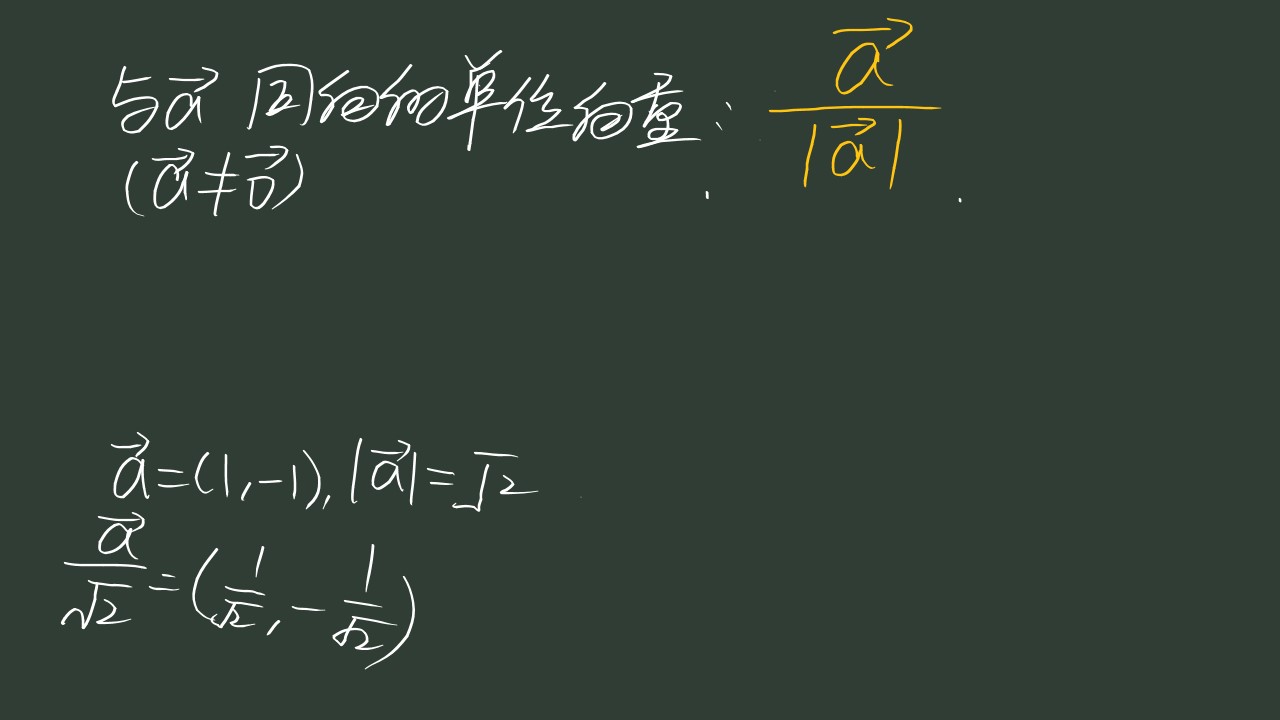 与\vec{a} 同向的单位向量：\frac{\vec{a}}{|\vec{a}|}
(\vec{a}≠\vec{0})
\vec{a}=(1,-1),|\vec{a}|=√2
\frac{\vec{a}}{√2}=(\frac{1}{√2},-\frac{1}{√2})